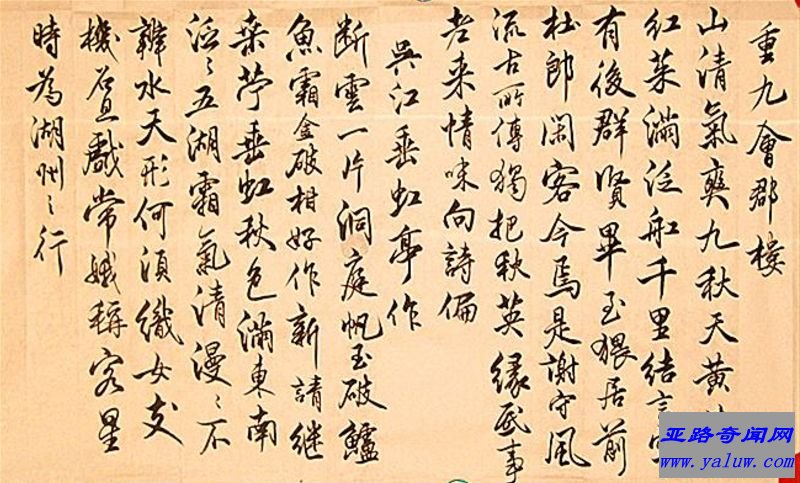 重九會郡樓
山清氣爽九秋天黃
紅茱滿泛船千里結言
有後群賢畢至猥居前
杜郎閑客今焉是謝守風
流古所傳獨把秋英緣底事
老来情味向詩偏
吳江垂虹亭作
断雲一片洞庭帆玉破鱸
魚霜金破柑好作新請継
桒苧垂虹秋色滿東南
泛〻五湖霜氣清漫〻不
辨水天形何須織女支
機且戲常娥稱客星
時為湖州之行
亚路奇闻网
www.yaluw.com